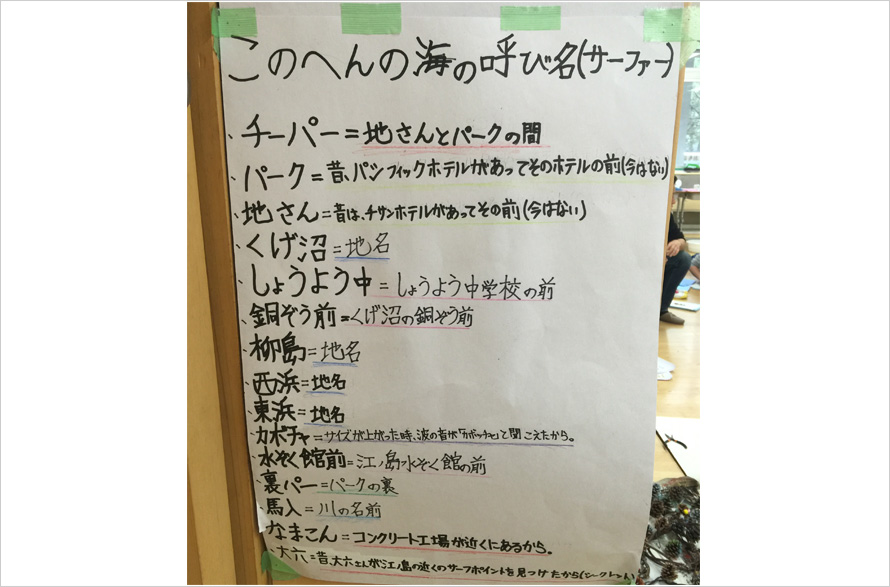 このへんの海の呼び名(サーファー)
・チーパー=地さんとパークの間
・パーク=昔、パシフィックホテルがあってそのホテルの前(今はない)
・地さん=昔は、チサンホテルがあってその前(今はない)
・くげ沼=地名
・しょうよう中=しょうよう中学校の前
・銅ぞう前=くげ沼の銅ぞう前
・柳島=地名
・西浜=地名
・東浜=地名
・カボチャ=サイズが上がった時、波の音が「カボッチャッ」と聞こえたから。
・水ぞく館前=江ノ島水ぞく館の前
・裏パー=パークの裏
・馬入=川の名前
・なまこん=コンクリート工場が近くにあるから。
・大六=昔、大六さんが江ノ島の近くのサーフポイントを見つけたから(シークレット)